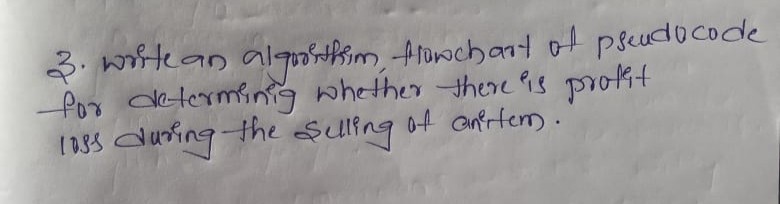 3. write an algorithm, flowchart of pseudocode
for determinig whether there is profit
loss during the selling of an item.